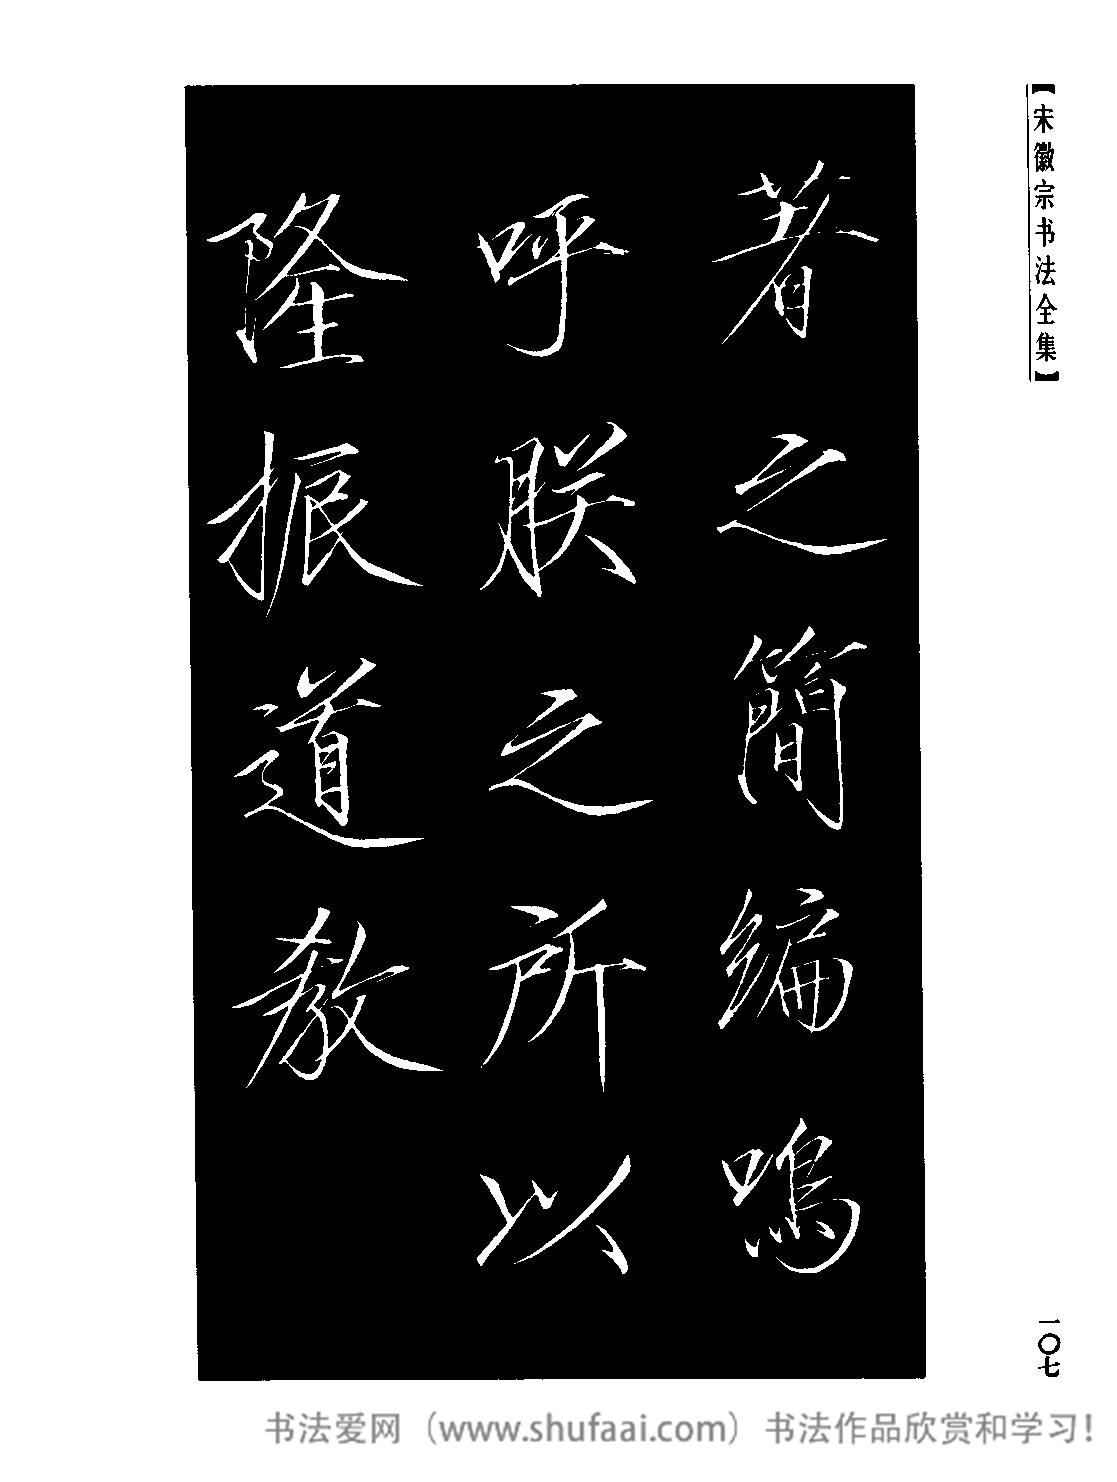 【宋徽宗书法全集】
著之簡編嗚
呼朕之所以
隆振道教
一〇七
书法爱网（www.shufaai.com）书法作品欣赏和学习！